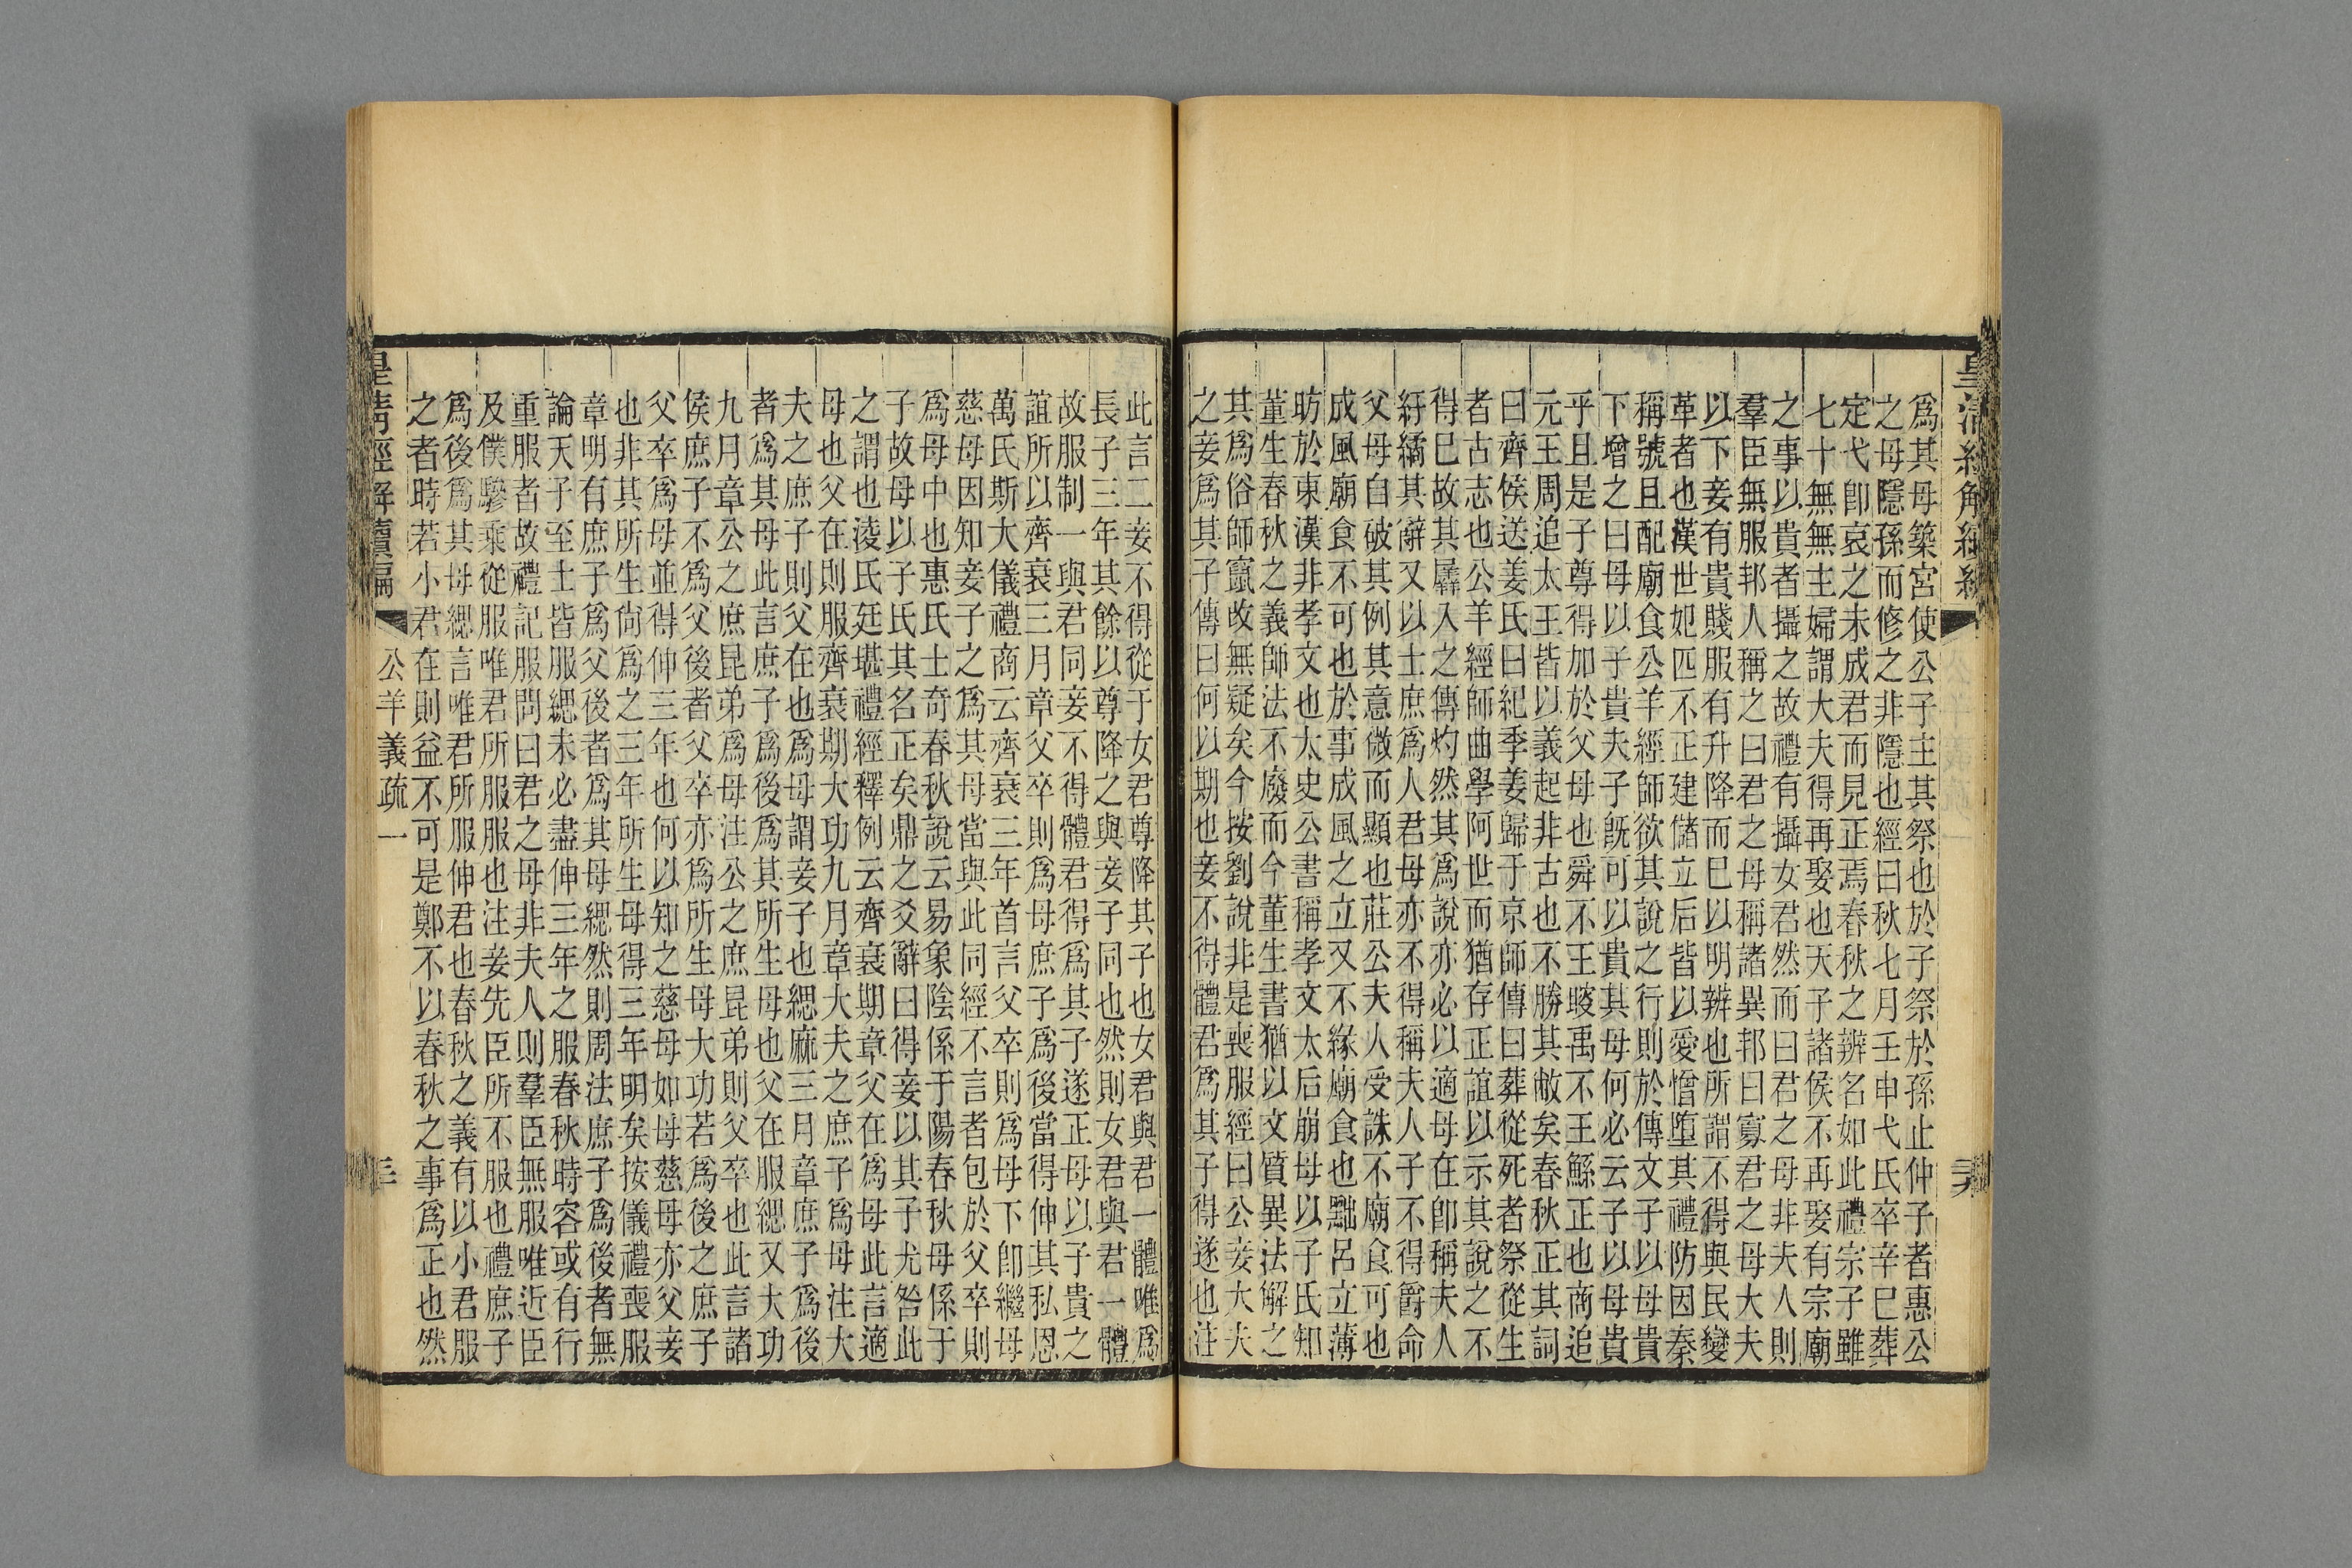 爲其母築宮使公子主其祭也於子祭於孫止仲子者惠公
之母隱孫而修之非隱也經曰秋七月壬申弋氏卒辛巳葬
定弋卽哀之未成君而見正焉春秋之辨名如此禮宗子雖
七十無無主婦謂大夫得再娶也天子諸侯不再娶有宗廟
之事以貴者攝之故禮有攝女君然而曰君之母非夫人則
羣臣無服邦人稱之曰君之母稱諸異邦曰寡君之母大夫
以下妾有貴賤服有升降而巳以明辨也所謂不得與民變
革者也漢世妃匹不正建儲立后皆以愛憎墮其禮防因秦
稱號且配廟食公羊經師欲其說之行則於傳文子以母貴
下增之曰母以子貴夫子旣可以貴其母何必云子以母貴
乎且是子尊得加於父母也舜不王瞍禹不王鯀正也商追
元王周追太王王皆以義起非古也不勝其敝矣春秋正其詞
曰齊侯送姜氏曰紀季姜歸于京師傳曰葬從死者祭從生
者古志也公羊經師曲學阿世而猶存正誼以示其說之不
得巳故其羼入之傳灼然其爲說亦必以適母在卽稱夫人
紆繘其辭又以士庶爲人君母亦不得稱夫人子不得爵命
父母自破其例其意微而顯也莊公夫人受誅不廟食可也
成風廟食不可也於事成風之立又不緣廟食也黜呂立薄
昉於東漢非孝文也太史公書稱孝文太后崩母以子氏知
董生春秋之義師法不廢而今董生書猶以文質異法解之
其爲俗師竄改無疑矣今按劉說非是喪服經曰公妾大夫
之妾爲其子傳曰何以期也妾不得體君爲其子得遂也注
此言二妾不得從于女君尊降其子也女君與君一體唯爲
長子三年其餘以尊降之與妾子同也然則女君與君一體
故服制一與君同妾不得體君得爲其子遂正母以子貴之
誼所以齊衰三月章父卒則爲母庶子爲後當得伸其私恩
萬氏斯大儀禮商云齊衰三年首言父卒則爲母下卽繼母
慈母因知妾子之爲其母當與此同經不言者包於父卒則
爲母中也惠氏士奇春秋說云易象陰係于陽春秋母係于
子故母以子氏其名正矣鼎之爻辭曰得妾以其子尤咎此
之謂也淩氏廷堪禮經釋例云齊衰期章父在爲母此言適
母也父在則服齊衰期大功九月章大夫之庶子爲母注大
夫之庶子則父在也爲母謂妾子也緦麻三月章庶子爲後
者爲其母此言庶子爲後爲其所生母也父在服緦又大功
九月章公之庶昆弟爲母注公之庶昆弟則父卒也此言諸
侯庶子不爲父後者父卒亦爲所生母大功若爲後之庶子
父卒爲母並得伸三年也何以知之慈母如母慈母亦父妾
也非其所生尙爲之三年所生母得三年明矣按儀禮喪服
章明有庶子爲父後者爲其母緦然則周法庶子爲後者無
論天子至士皆服緦未必盡伸三年之服春秋時容或有行
重服者故禮記服問曰君之母非夫人則羣臣無服唯近臣
及僕驂乘從服唯君所服服也注妾先臣所不服也禮庶子
爲後爲其母緦言唯君所服伸君也春秋之義有以小君服
之者時若小君在則益不可是鄭不以春秋之事爲正也然
公羊義疏一